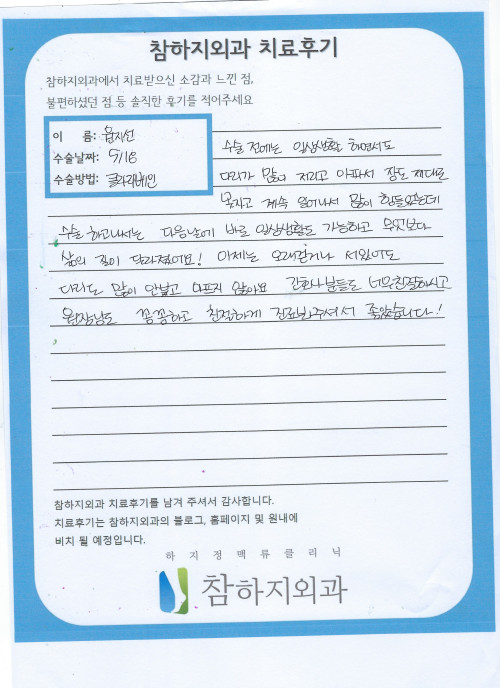 참하지외과 치료후기
참하지외과에서 치료받으신 소감과 느낀 점,
불편하셨던 점 등 솔직한 후기를 적어주세요
이 름: 윤지선
수술날짜: 5/16
수술방법: 클라리베인
수술 전에는 일상생활 하면서도
다리가 많이 저리고 아파서 잠도 제대로
못자고 계속 일어나서 많이 힘들었는데
수술 하고나서는 다음날에 바로 일상생활도 가능하고 무엇보다
삶의 질이 달라졌어요! 이제는 오래걷거나 서있어도
다리도 많이 안날고 아프지 않아요 간호사분들도 너무친절하시고
원장님도 꼼꼼하고 친절하게 진료봐주셔서 좋았습니다!
참하지외과 치료후기를 남겨 주셔서 감사합니다.
치료후기는 참하지외과의 블로그, 홈페이지 및 원내에
비치 될 예정입니다.
하지정맥류클리닉
참하지외과